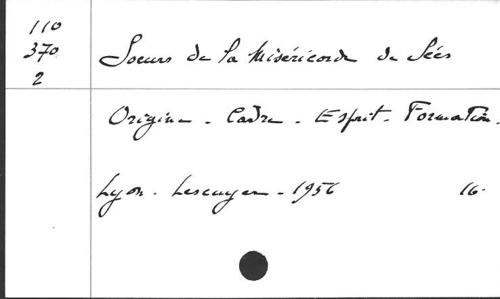 110
370
2
Soeurs de la Miséricorde de Sées
Origine - Cadre - Esprit - Formation.
Lyon - Lescuyer - 1956 16.